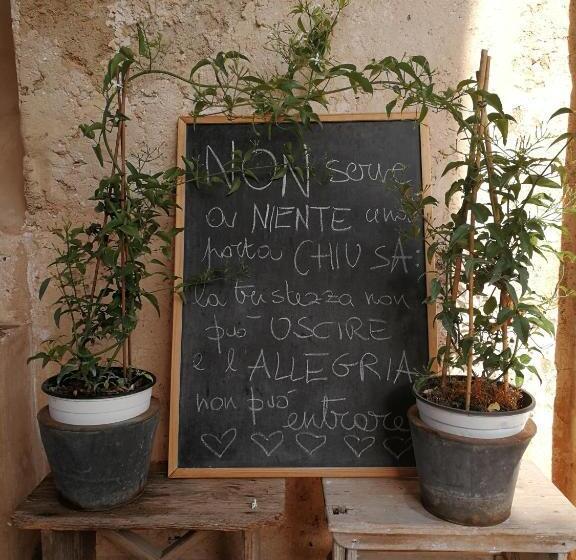 NON serve
a NIENTE una
porta CHIUSA:
la tristezza non
può USCIRE
e l'ALLEGRIA
non può
entrare